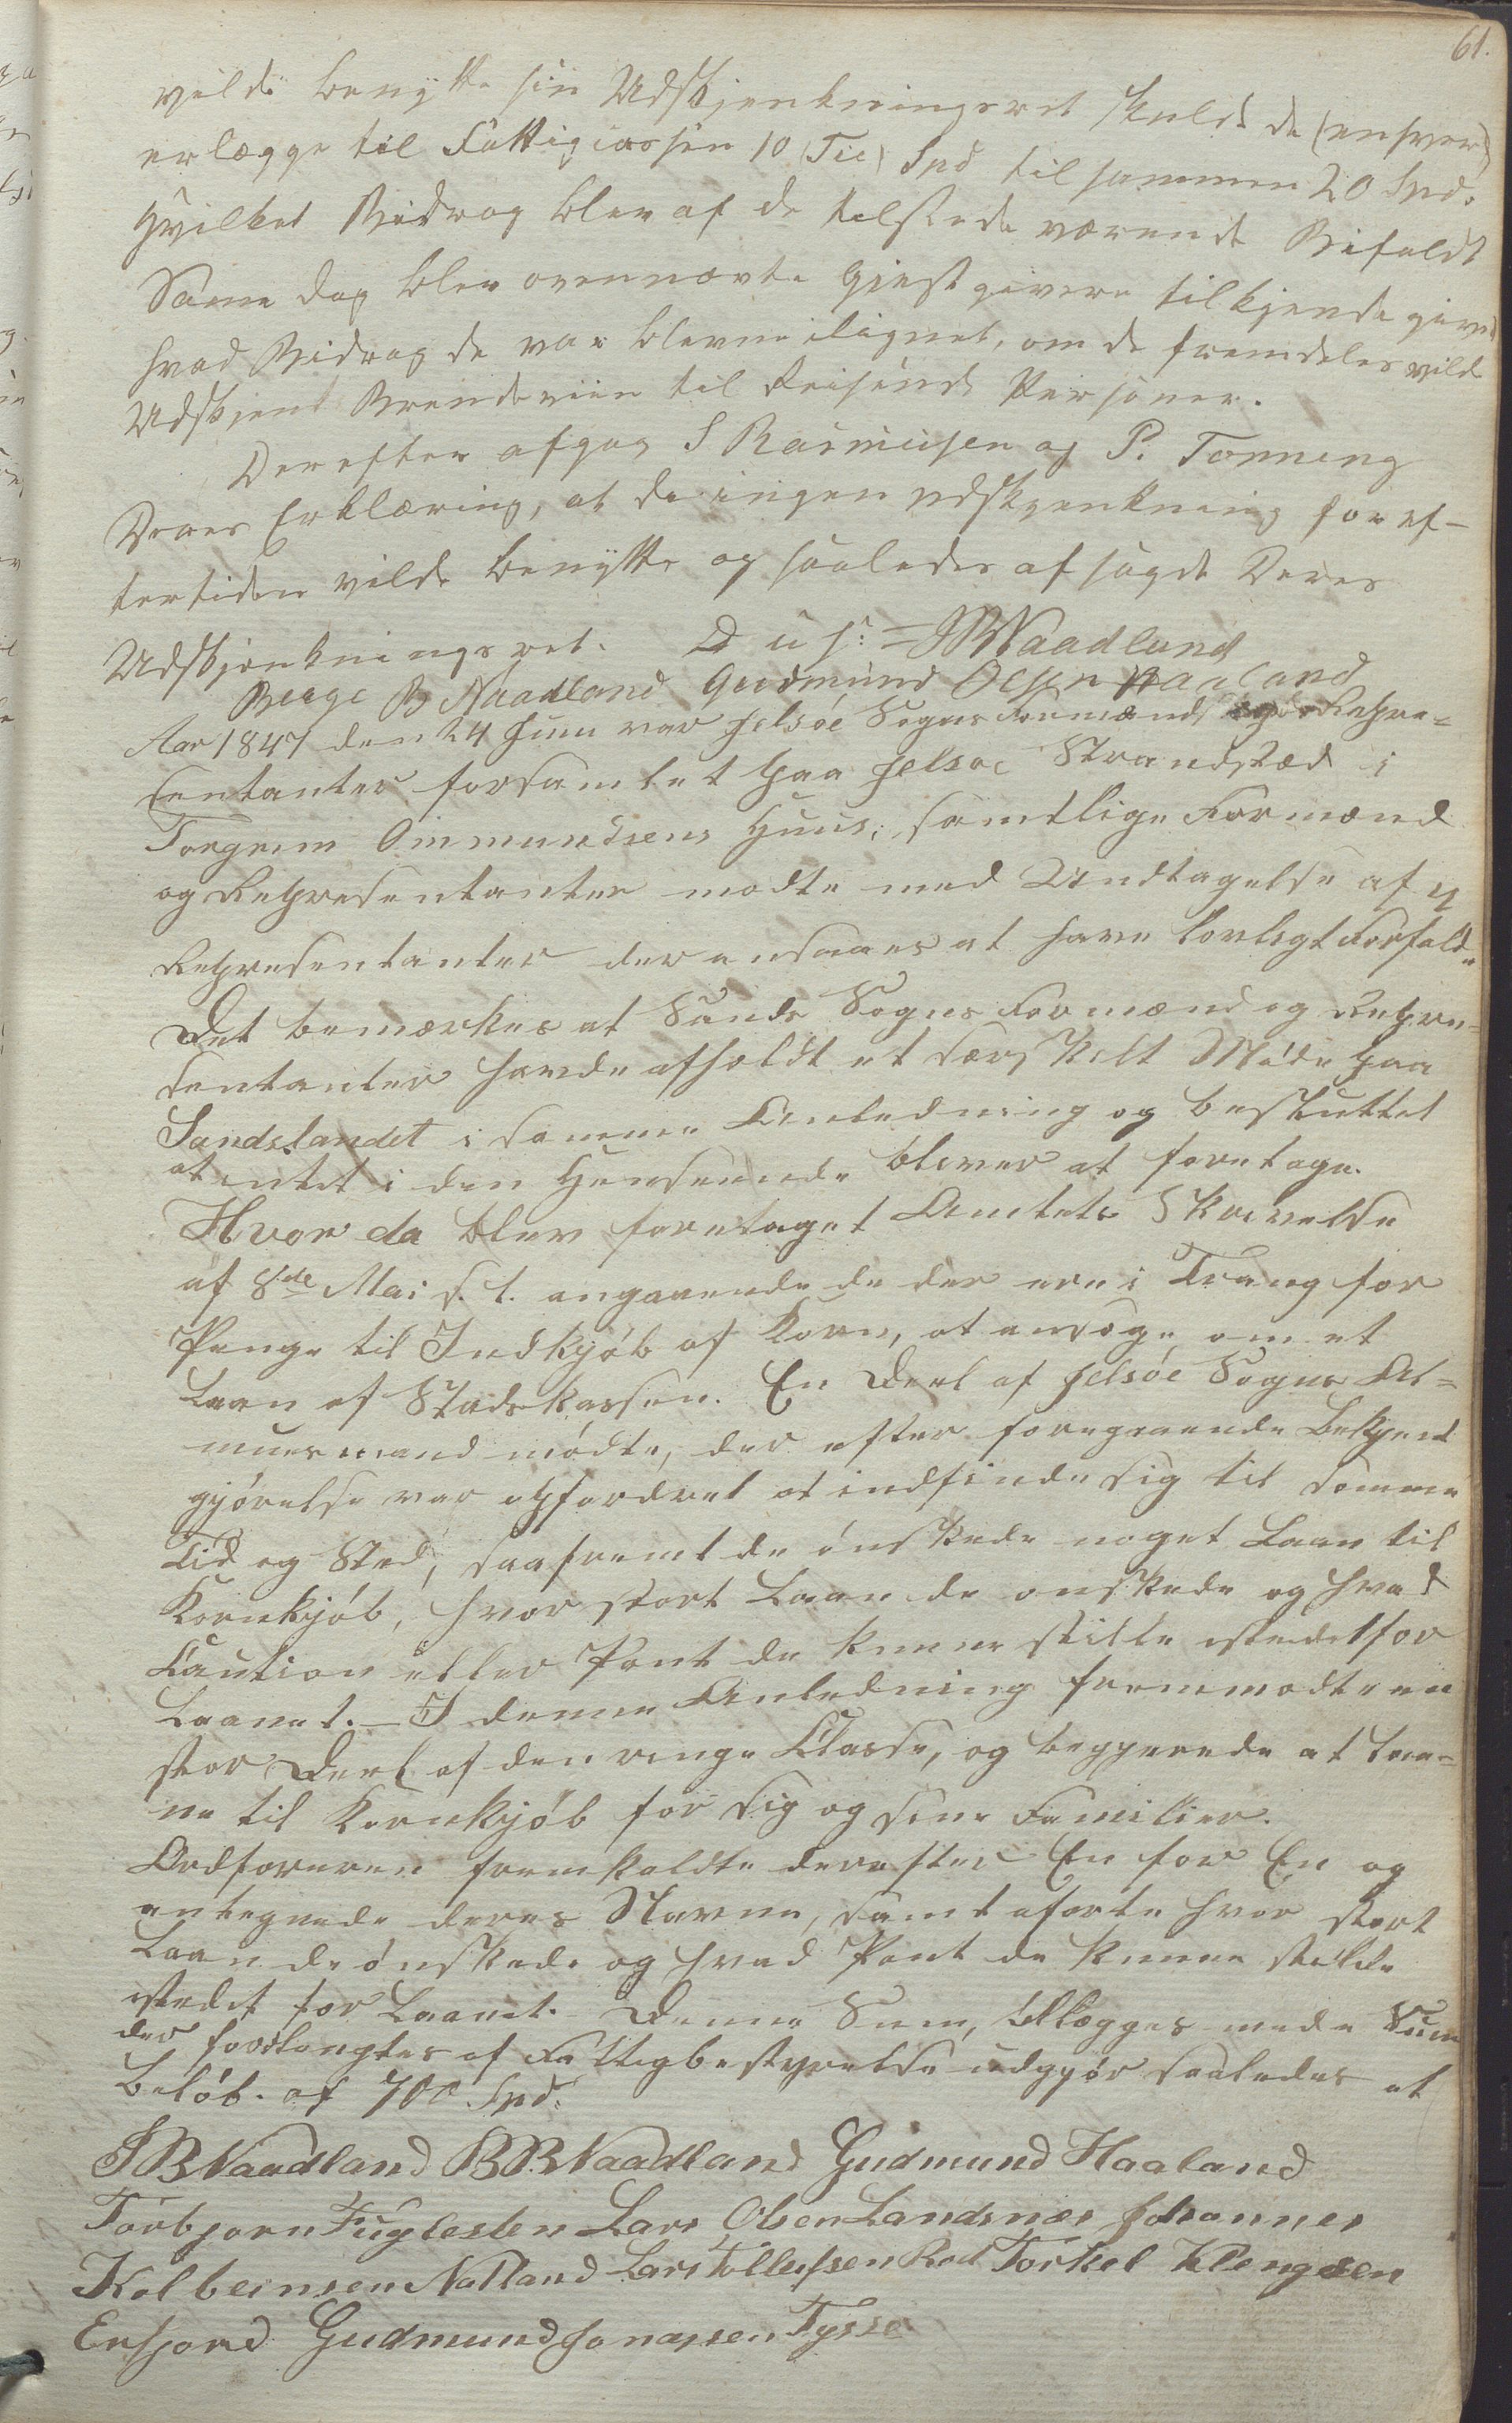 61.
vilde benytte sin Udskjenkningsret skulde de (enhver)
erlægge til Fattigcassen 10 (Tie) Spd til sammen 20 Spd.
Hvilket Bidrag blev af de tilstede værende Bifaldt
Same dag blev ovennævte Gjestgivere tilkjende givet
hvad Bidrag de var blevne ilignet, om de fremdeles vilde
Udskjenk Brendeviin til Reisende Personer.
Derefter afgav S Rasmusen og P. Tonning
Deres Erklæring, at de ingen udskjenkning for ef-
tertiden vilde benytte og saaledes afsagde Deres
Udskjenkningsret. D u s: JBNaadland
Berge B Naadland Gudmund Olsen Haaland
Aar 1847 den 24 Juni var Jelsøe Sogns Formænd og Repre-
sentanter forsamlet paa Jelsøe Strandstæd i
Torgrim Ommundsens Huus; samtlige Formænd
og Representanter mødte med Undtagelse af 4
Representanter der ansaaes at have lovligt Forfald.
Det bemærkes at Sands Sogns Formænd og Repre-
sentanter havde afholdt et særskilt Møde paa
Sandslandet i samme Anledning og besluttet
at intet i den Henseende bliver at foretage.
Hvor da blev foretaget Amtets Skrivelse
af 8de Mai d. l. angaaende de der ere i Trang for
Penge til Indkjøb af Korn, at ansøge om et
Laan af Stadskassen. En Deel af Jelsøe Sogns Al-
muesmænd mødte, der efter foregaaende Bekjent
gjørelse var opfordret at indfinde sig til samme
Tid og Sted, saafremt de ønskede noget Laan til
Kornkjøb, hvor stort Laan de ønskede og hvad
Caution eller Pant de kunne stille istedetfor
Laanet. - I denne Anledning fremmødte en
stor Deel af den ringe Classe, og begjerede at laa-
ne til Kornkjøb for sig og sine Familier.
Ordføreren fremkaldte derefter En for En og
antegnede deres Navne, samt anførte hvor stort
Laan de ønskede og hvad Pant de kunne stille
istedet for Laanet. Denne Sum, tillægges med Sum
der forlangtes af Fattigbestyrelse udgjør saaledes et
Beløb af 700 Spd.
JBNaadland BBNaadland Gudmund Haaland
Torbjorn Fuglesten Lars Olsen Landsnes Johannes
Kolbeinsen Natland Lars Tollefsen Rød Torkel Klengsen
Erfjord Gudmund Jonassen Tysse